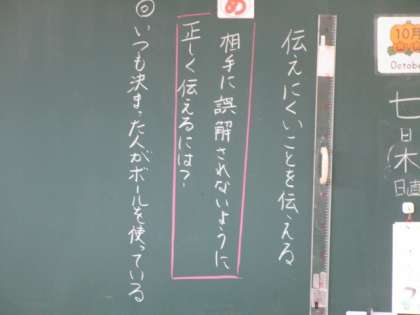 10月
October
七日(木)
伝えにくいことを伝える
め
相手に誤解されないように、
正しく伝えるには?
◎いつも決まった人がボールを使っている